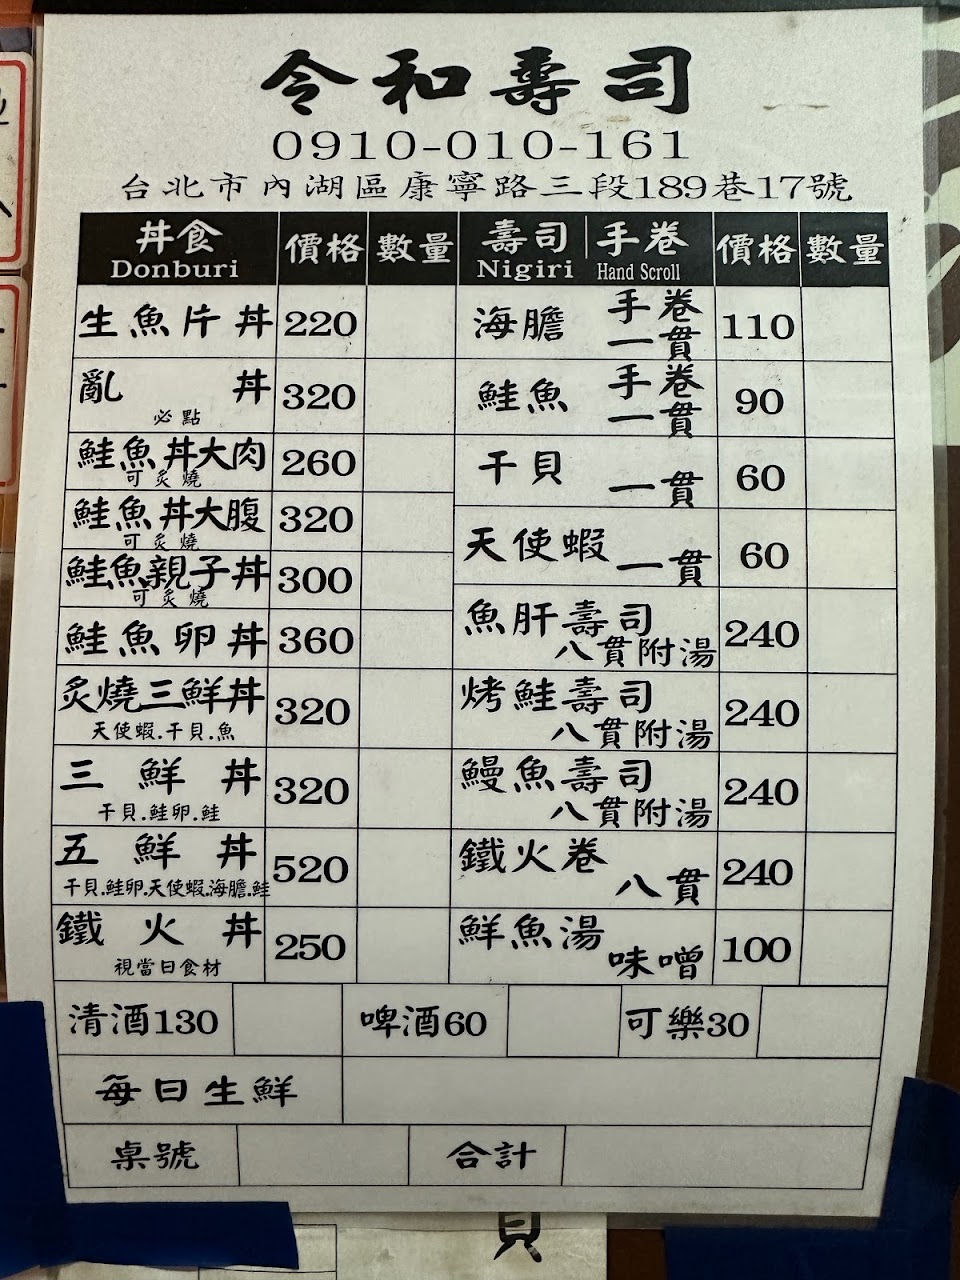 令和壽司
0910-010-161
台北市內湖區康寧路三段189巷17號
丼食 價格 數量 壽司 手卷 價格 數量
Donburi Nigiri Hand Scroll
生魚片丼 220
海膽 手卷 一貫 110
亂丼 320
必點
鮭魚 手卷 一貫 90
鮭魚丼大肉 260
可炙燒
干貝 一貫 60
鮭魚丼大腹 320
可炙燒
天使蝦 一貫 60
鮭魚親子丼 300
可炙燒
魚肝壽司 240
八貫附湯
鮭魚卵丼 360
烤鮭壽司 240
八貫附湯
炙燒三鮮丼 320
天使蝦.干貝.魚
鰻魚壽司 240
八貫附湯
三鮮丼 320
干貝.鮭卵.鮭
鐵火卷 八貫 240
五鮮丼 520
干貝.鮭卵.天使蝦.海膽.鮭
鮮魚湯 味噌 100
鐵火丼 250
視當日食材
清酒130 啤酒60 可樂30
每日生鮮
桌號 合計
貝